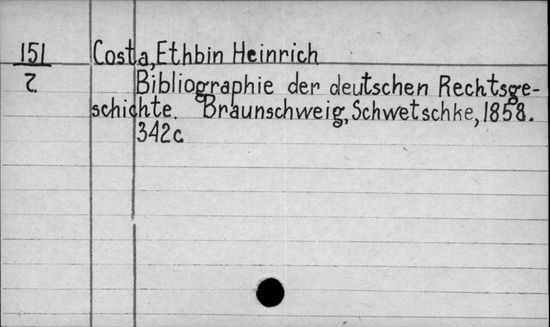 151
7.
Costa, Ethbin Heinrich
Bibliographie der deutschen Rechtsge-
schichte. Braunschweig, Schwetschke, 1858.
342c